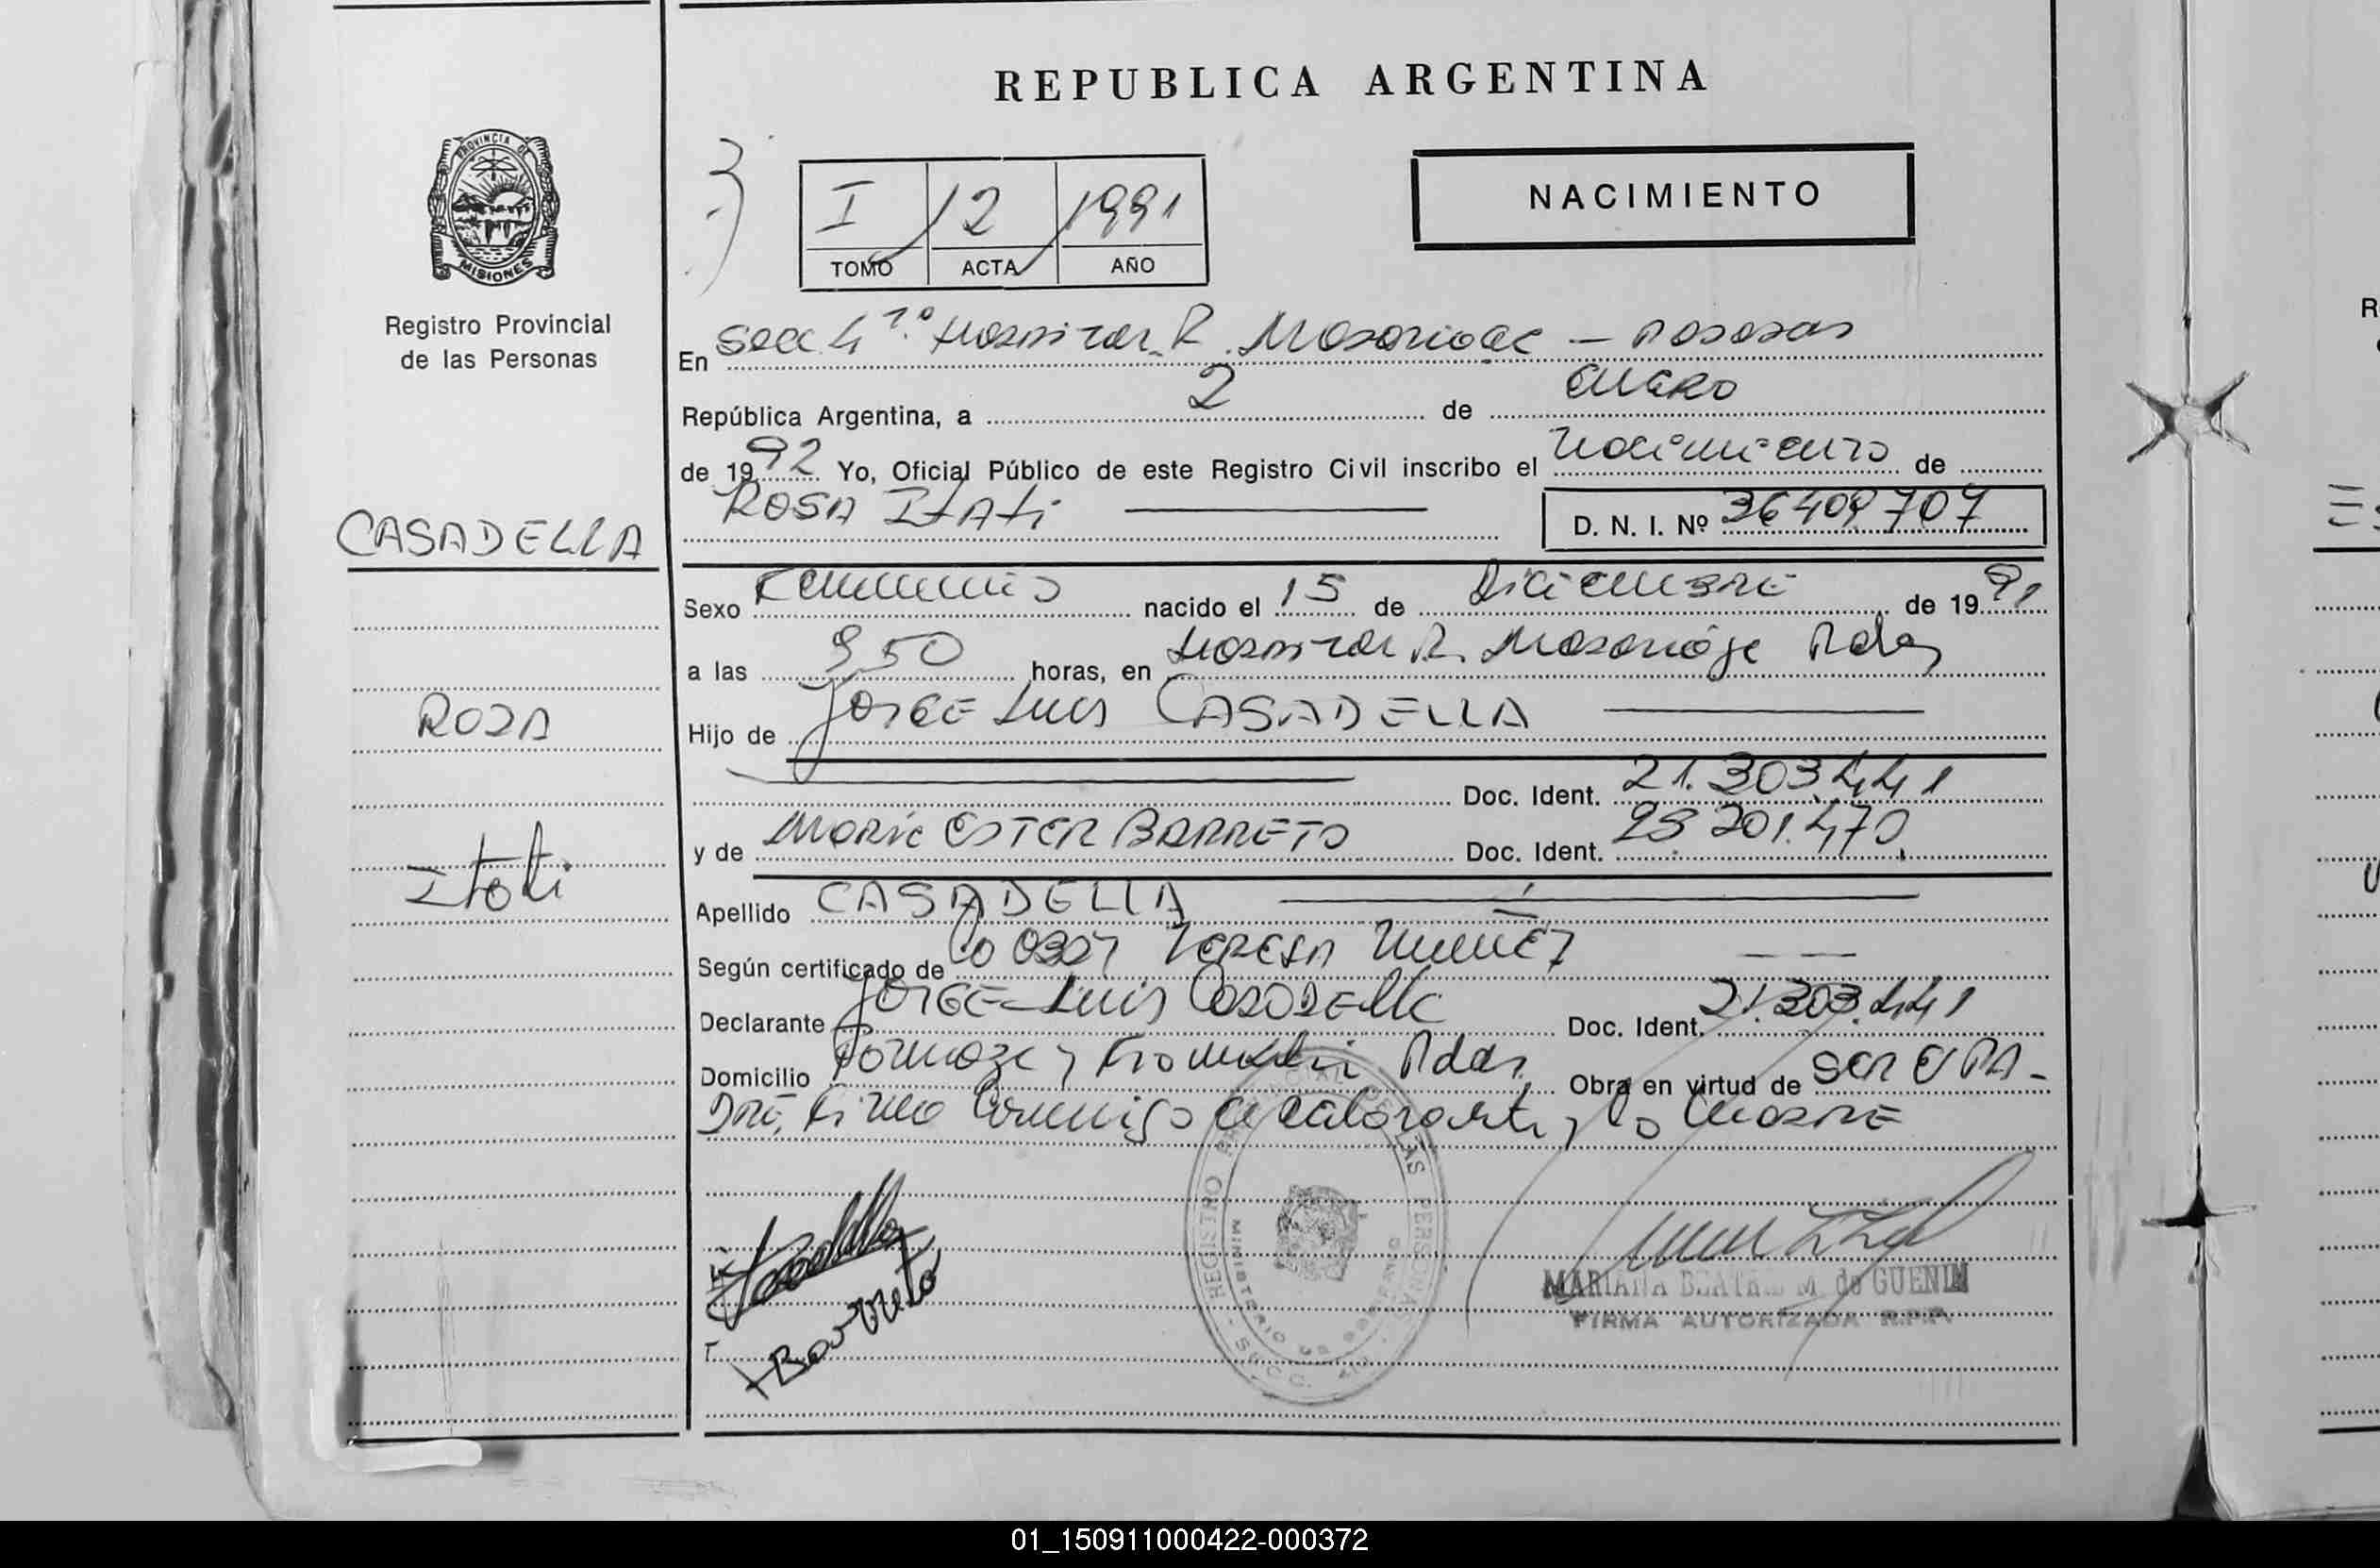 REPUBLICA ARGENTINA
PROVINCIA DE
MISIONES
Registro Provincial
de las Personas
I 12 1991
TOMO ACTA AÑO
NACIMIENTO
En Secc. 4ª. Hospital R. Madariaga - Posadas
República Argentina, a 2 de enero
de 1992 Yo, Oficial Público de este Registro Civil inscribo el nacimiento de
ROSA ITATI
D. N. I. Nº 36409707
CASADELLA
ROSA
Itati
Sexo Femenino nacido el 15 de Diciembre de 1991
a las 9,50 horas, en Hospital R. Madariaga Pdas
Hijo de JORGE LUIS CASADELLA
Doc. Ident. 21.303.441
y de MARIA ESTER BARRETO Doc. Ident. 23.201.470.
Apellido CASADELLA
Según certificado de La Obst Teresa
Declarante JORGE LUIS Casadella Doc. Ident. 21.303.441
Domicilio Pdas. Obra en virtud de SER EL PA-
DRE, Firma Conmigo el declarante y la MADRE
Barreto
REGISTRO PROVINCIAL DE LAS PERSONAS
MINISTERIO DE GOBIERNO
SECC. 4ta
MARIANA BEATRIZ M. de GUENIN
FIRMA AUTORIZADA R.P.P.
01_150911000422-000372